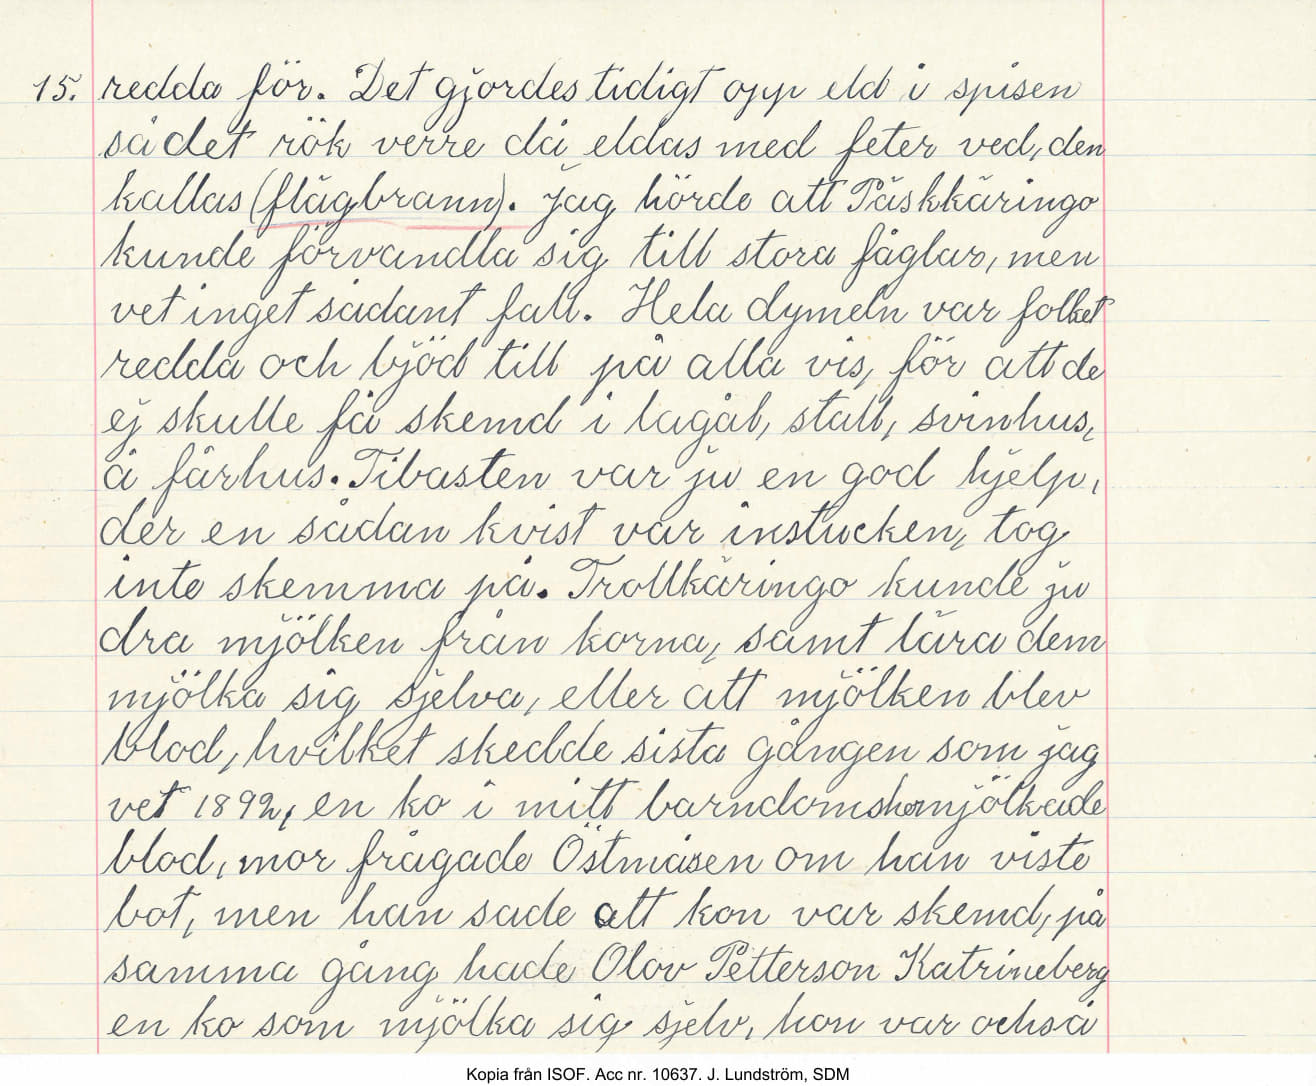 15. redda för. Det gjordes tidigt opp eld i spisen
så det rök verre då eldas med feter ved, den
kallas (flågbrann). Jag hörde att Påskkäringo
kunde förvandla sig till stora fåglar, men
vet inget sådant fall. Hela dymeln var folket
redda och bjöd till på alla vis, för att de
ej skulle få skemd i lagål, stall, svinhus,
å fårhus. Tibasten var ju en god hjelp,
der en sådan kvist var instucken, tog
inte skemma på. Trollkäringo kunde ju
dra mjölken från korna, samt lära dem
mjölka sig sjelva, eller att mjölken blev
blod, hvilket skedde sista gången som jag
vet 1892, en ko i mitt barndomshem mjölkade
blod, mor frågade Östmåsen om han viste
bot, men han sade att kon var skemd, på
samma gång hade Olov Petterson Katrineberg
en ko som mjölka sig sjelv, hon var också
Kopia från ISOF. Acc nr. 10637. J. Lundström, SDM